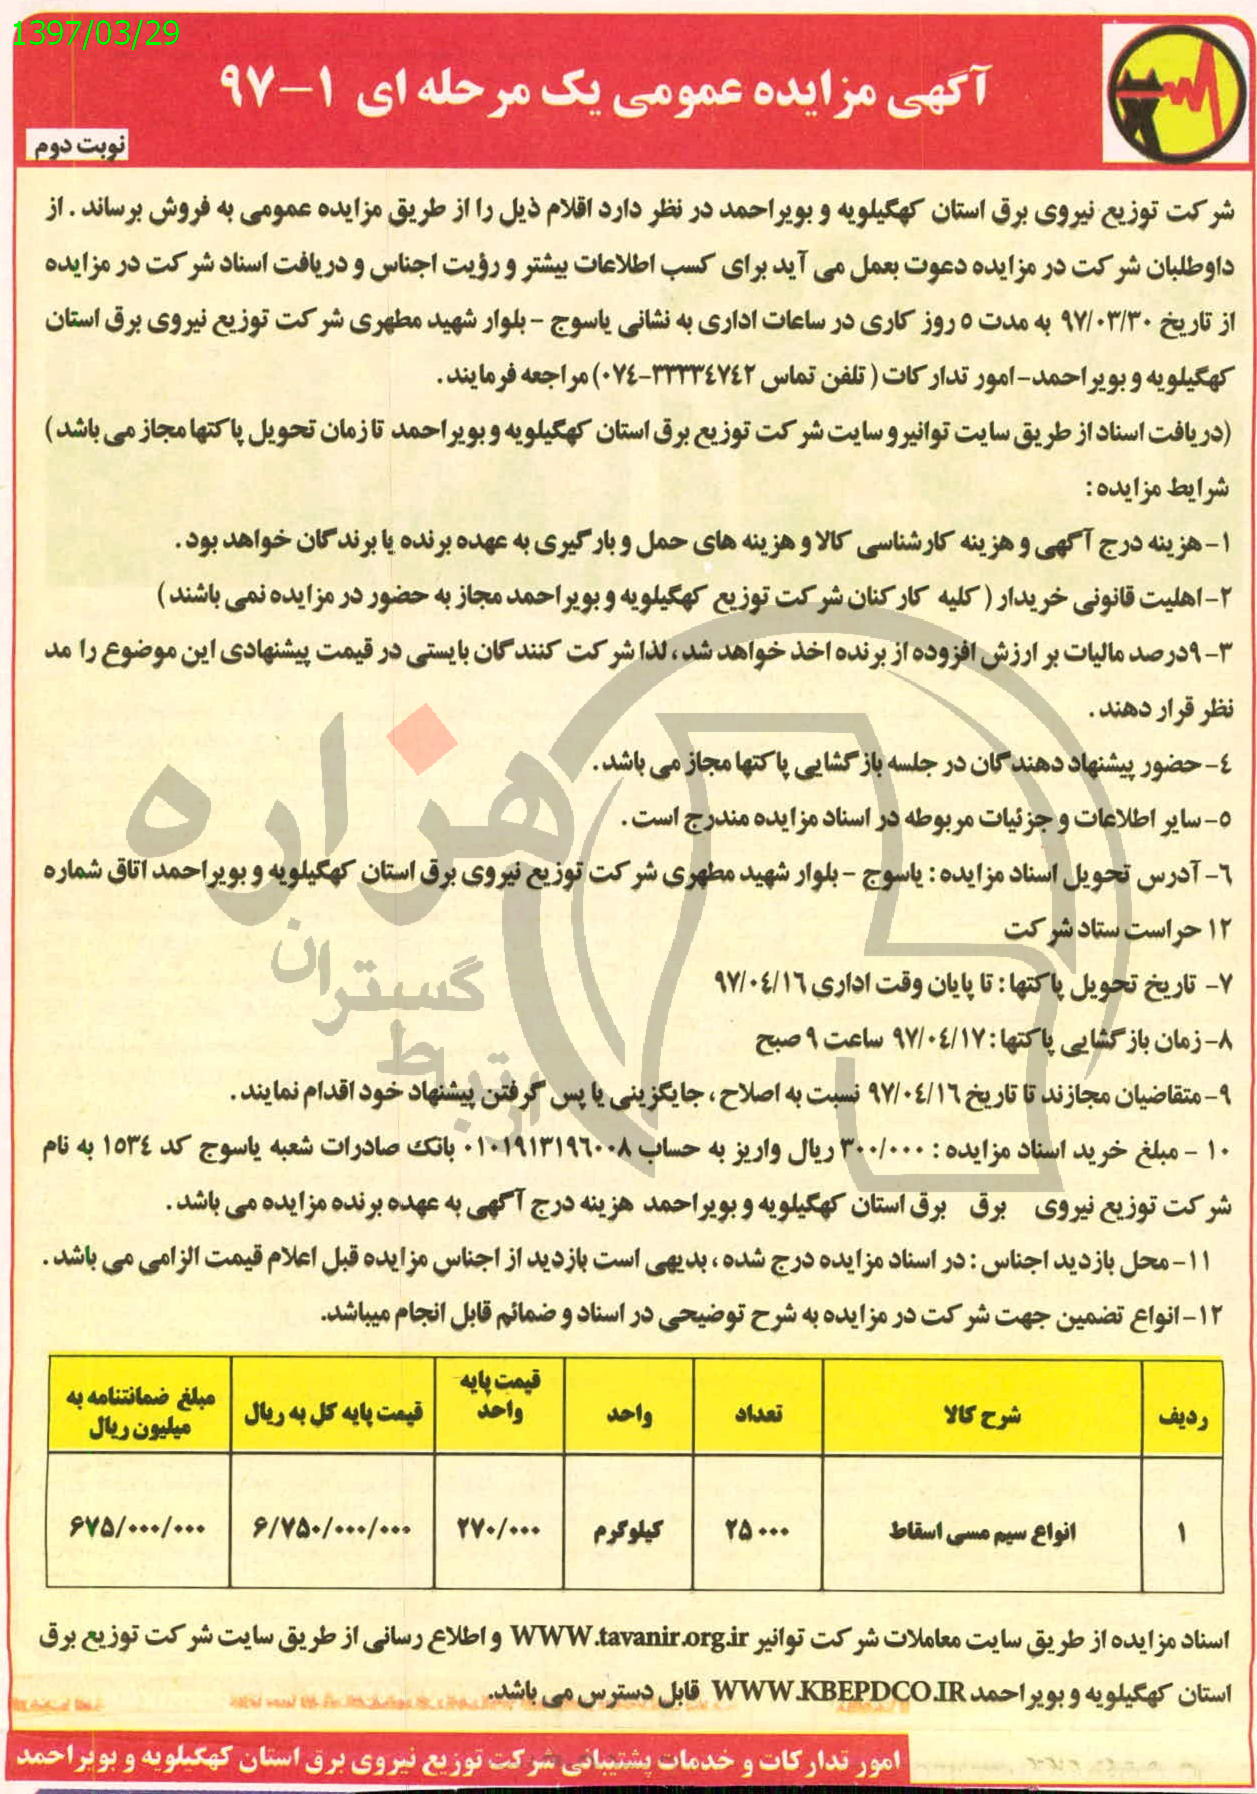 1397/03/29
آگهی مزایده عمومی یک مرحله ای ۱–۹۷
نوبت دوم
شرکت توزیع نیروی برق استان کهگیلویه و بویراحمد در نظر دارد اقلام ذیل را از طریق مزایده عمومی به فروش برساند . از
داوطلبان شرکت در مزایده دعوت بعمل می آید برای کسب اطلاعات بیشتر و رؤیت اجناس و دریافت اسناد شرکت در مزایده
از تاریخ ۹۷/۰۳/۳۰ به مدت ۵ روز کاری در ساعات اداری به نشانی یاسوج – بلوار شهید مطهری شرکت توزیع نیروی برق استان
کهگیلویه و بویراحمد– امور تدارکات ( تلفن تماس ۳۳۳۳٤۷٤۲–۰۷٤) مراجعه فرمایند .
(دریافت اسناد از طریق سایت توانیر و سایت شرکت توزیع برق استان کهگیلویه و بویراحمد تا زمان تحویل پاکتها مجاز می باشد )
شرایط مزایده :
۱– هزینه درج آگهی و هزینه کارشناسی کالا و هزینه های حمل و بارگیری به عهده برنده یا برندگان خواهد بود .
۲– اهلیت قانونی خریدار ( کلیه کارکنان شرکت توزیع کهگیلویه و بویراحمد مجاز به حضور در مزایده نمی باشند )
۳– ۹درصد مالیات بر ارزش افزوده از برنده اخذ خواهد شد ، لذا شرکت کنندگان بایستی در قیمت پیشنهادی این موضوع را مد
نظر قرار دهند .
٤– حضور پیشنهاد دهندگان در جلسه بازگشایی پاکتها مجاز می باشد .
۵– سایر اطلاعات و جزئیات مربوطه در اسناد مزایده مندرج است .
٦– آدرس تحویل اسناد مزایده : یاسوج – بلوار شهید مطهری شرکت توزیع نیروی برق استان کهگیلویه و بویراحمد اتاق شماره
۱۲ حراست ستاد شرکت
۷– تاریخ تحویل پاکتها : تا پایان وقت اداری ۹۷/۰٤/۱٦
۸– زمان بازگشایی پاکتها : ۹۷/۰٤/۱۷ ساعت ۹ صبح
۹– متقاضیان مجازند تا تاریخ ۹۷/۰٤/۱٦ نسبت به اصلاح ، جایگزینی یا پس گرفتن پیشنهاد خود اقدام نمایند .
۱۰ – مبلغ خرید اسناد مزایده : ۳۰۰/۰۰۰ ریال واریز به حساب ۰۱۰۱۹۱۳۱۹٦۰۰۸ بانک صادرات شعبه یاسوج کد ۱۵۳٤ به نام
شرکت توزیع نیروی برق برق استان کهگیلویه و بویراحمد هزینه درج آگهی به عهده برنده مزایده می باشد .
۱۱– محل بازدید اجناس : در اسناد مزایده درج شده ، بدیهی است بازدید از اجناس مزایده قبل اعلام قیمت الزامی می باشد .
۱۲– انواع تضمین جهت شرکت در مزایده به شرح توضیحی در اسناد و ضمائم قابل انجام میباشد.
ردیف شرح کالا تعداد واحد قیمت پایه واحد قیمت پایه کل به ریال مبلغ ضمانتنامه به میلیون ریال
۱ انواع سیم مسی اسقاط ۲۵۰۰۰ کیلوگرم ۲۷۰/۰۰۰ ۶/۷۵۰/۰۰۰/۰۰۰ ۶۷۵/۰۰۰/۰۰۰
اسناد مزایده از طریق سایت معاملات شرکت توانیر WWW.tavanir.org.ir و اطلاع رسانی از طریق سایت شرکت توزیع برق
استان کهگیلویه و بویراحمد WWW.KBEPDCO.IR قابل دسترس می باشد.
امور تدارکات و خدمات پشتیبانی شرکت توزیع نیروی برق استان کهگیلویه و بویراحمد
هزاره
گستران
ارتباط